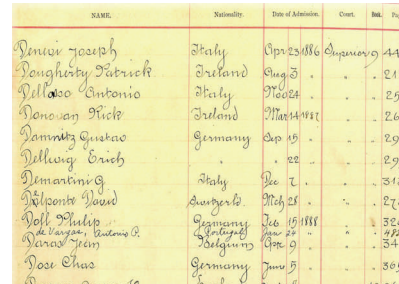 NAME. Nationality. Date of Admission. Court. Book. Pag
Denevi Joseph Italy Apr 23 1886 Superior 9 44
Dougherty Patrick Ireland Aug 3 " " 21
Dellaso Antonio Italy Nov 24 " " 25
Donovan Rick Ireland Mar 14 1887 " " 26
Damnitz Gustav Germany Sep 15 " " 29
Dellwig Erich " " 22 " " 29
Demartini G. Italy Dec 7 " " 31
Delponte David Switzerld. Mch 28 " " 27
Doll Philip Germany Feb 15 1888 " " 32
de Vargas, Antonio P. Portugal Jan 24 " "
Daras Jean Belgium Apr 9 " " 34
Dose Chas Germany June 5 " " 36